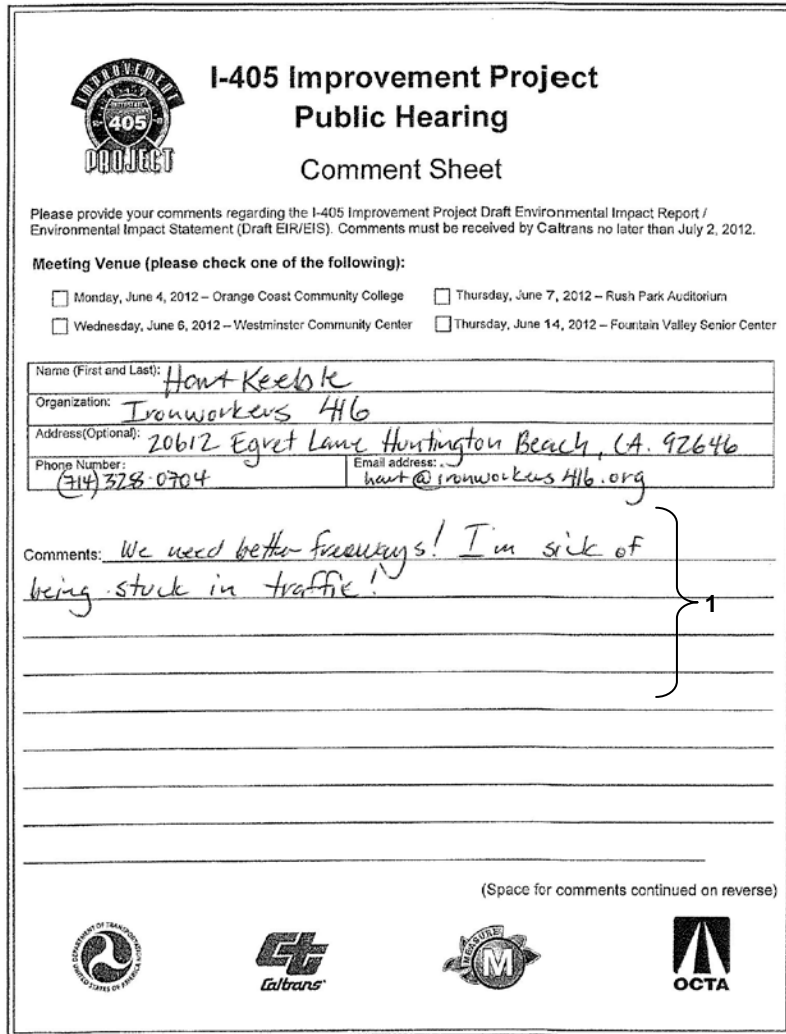 IMPROVEMENT
INTERSTATE
405
PROJECT
I-405 Improvement Project
Public Hearing
Comment Sheet
Please provide your comments regarding the I-405 Improvement Project Draft Environmental Impact Report /
Environmental Impact Statement (Draft EIR/EIS). Comments must be received by Caltrans no later than July 2, 2012.
Meeting Venue (please check one of the following):
Monday, June 4, 2012 – Orange Coast Community College
Thursday, June 7, 2012 – Rush Park Auditorium
Wednesday, June 6, 2012 – Westminster Community Center
Thursday, June 14, 2012 – Fountain Valley Senior Center
Name (First and Last): Hart Keeble
Organization: Ironworkers 416
Address(Optional): 20612 Egret Lane Huntington Beach, CA. 92646
Phone Number: (714) 328-0704
Email address: hart@ironworkers416.org
Comments: We need better freeways! I'm sick of
being stuck in traffic!
1
(Space for comments continued on reverse)
DEPARTMENT OF TRANSPORTATION
UNITED STATES OF AMERICA
Caltrans
MEASURE
M
OCTA